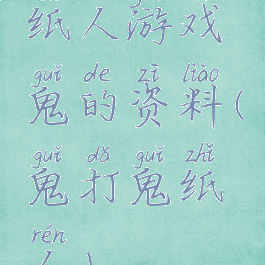 纸人游戏
guǐ de zī liào
鬼的资料(
guǐ dǎ guǐ zhǐ
鬼打鬼纸
rén
人)